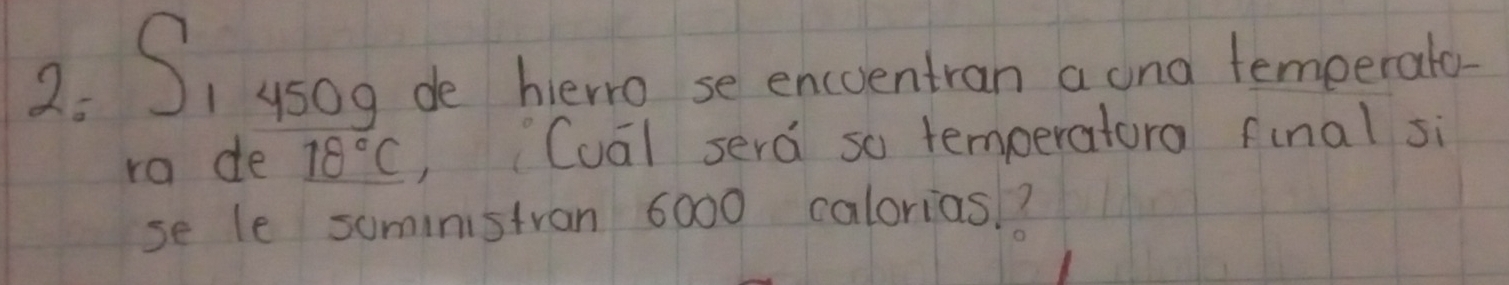 2.- Si 450g de hierro se encuentran a una temperatu-
ra de 18°C, ¿Cuál será su temperatura final si
se le suministran 6000 calorias.?